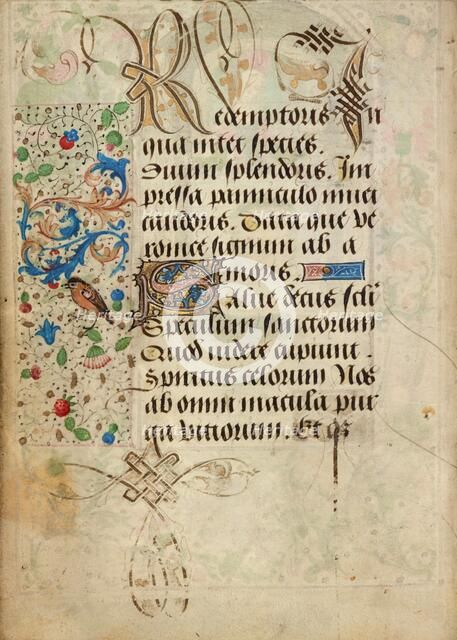 Redemptoris In
qua nitet species.
Divini splendoris. Im
pressa panniculo nivei
candoris. Data que Ve
ronice signum ob a
moris.
Salve decus seculi
Speculum sanctorum
Quod videre cupiunt.
Spiritus celorum Nos
ab omni macula pur
ga viciorum. Et
Heritage